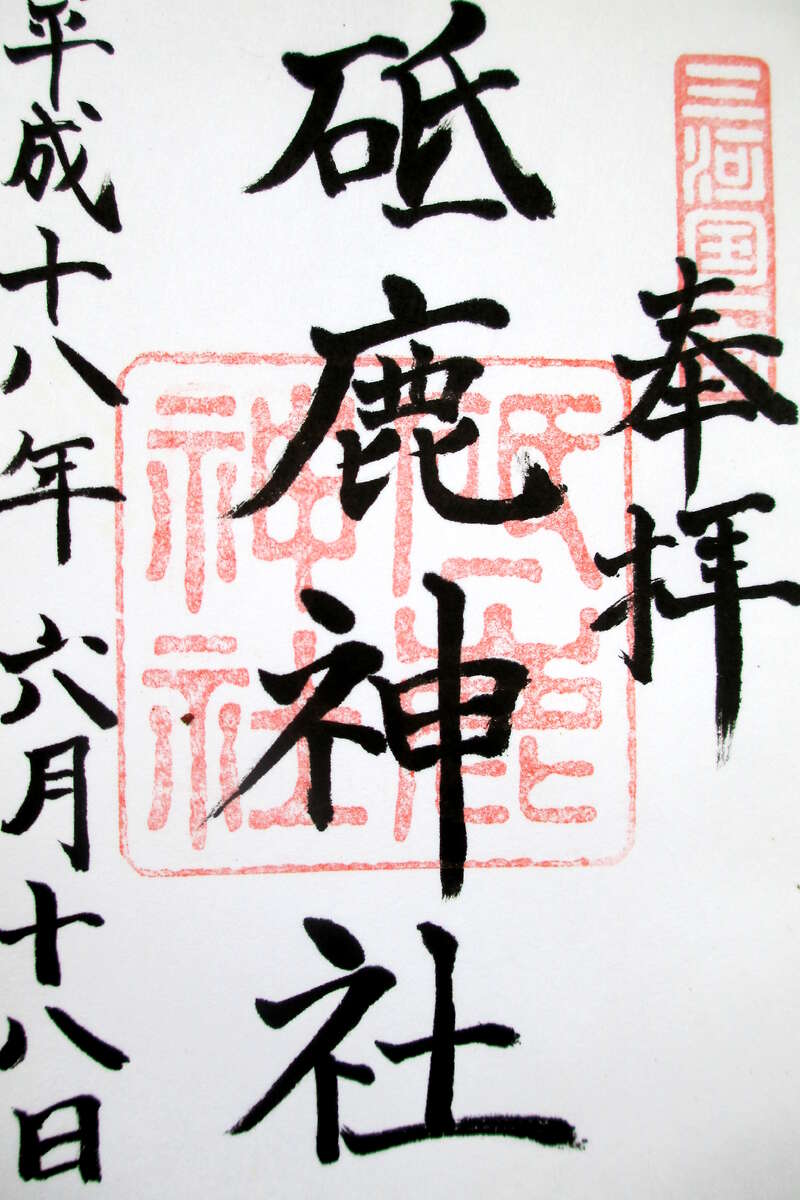 三河国一宮
奉拝
砥鹿神社
砥鹿神社
平成十八年 六月十八日